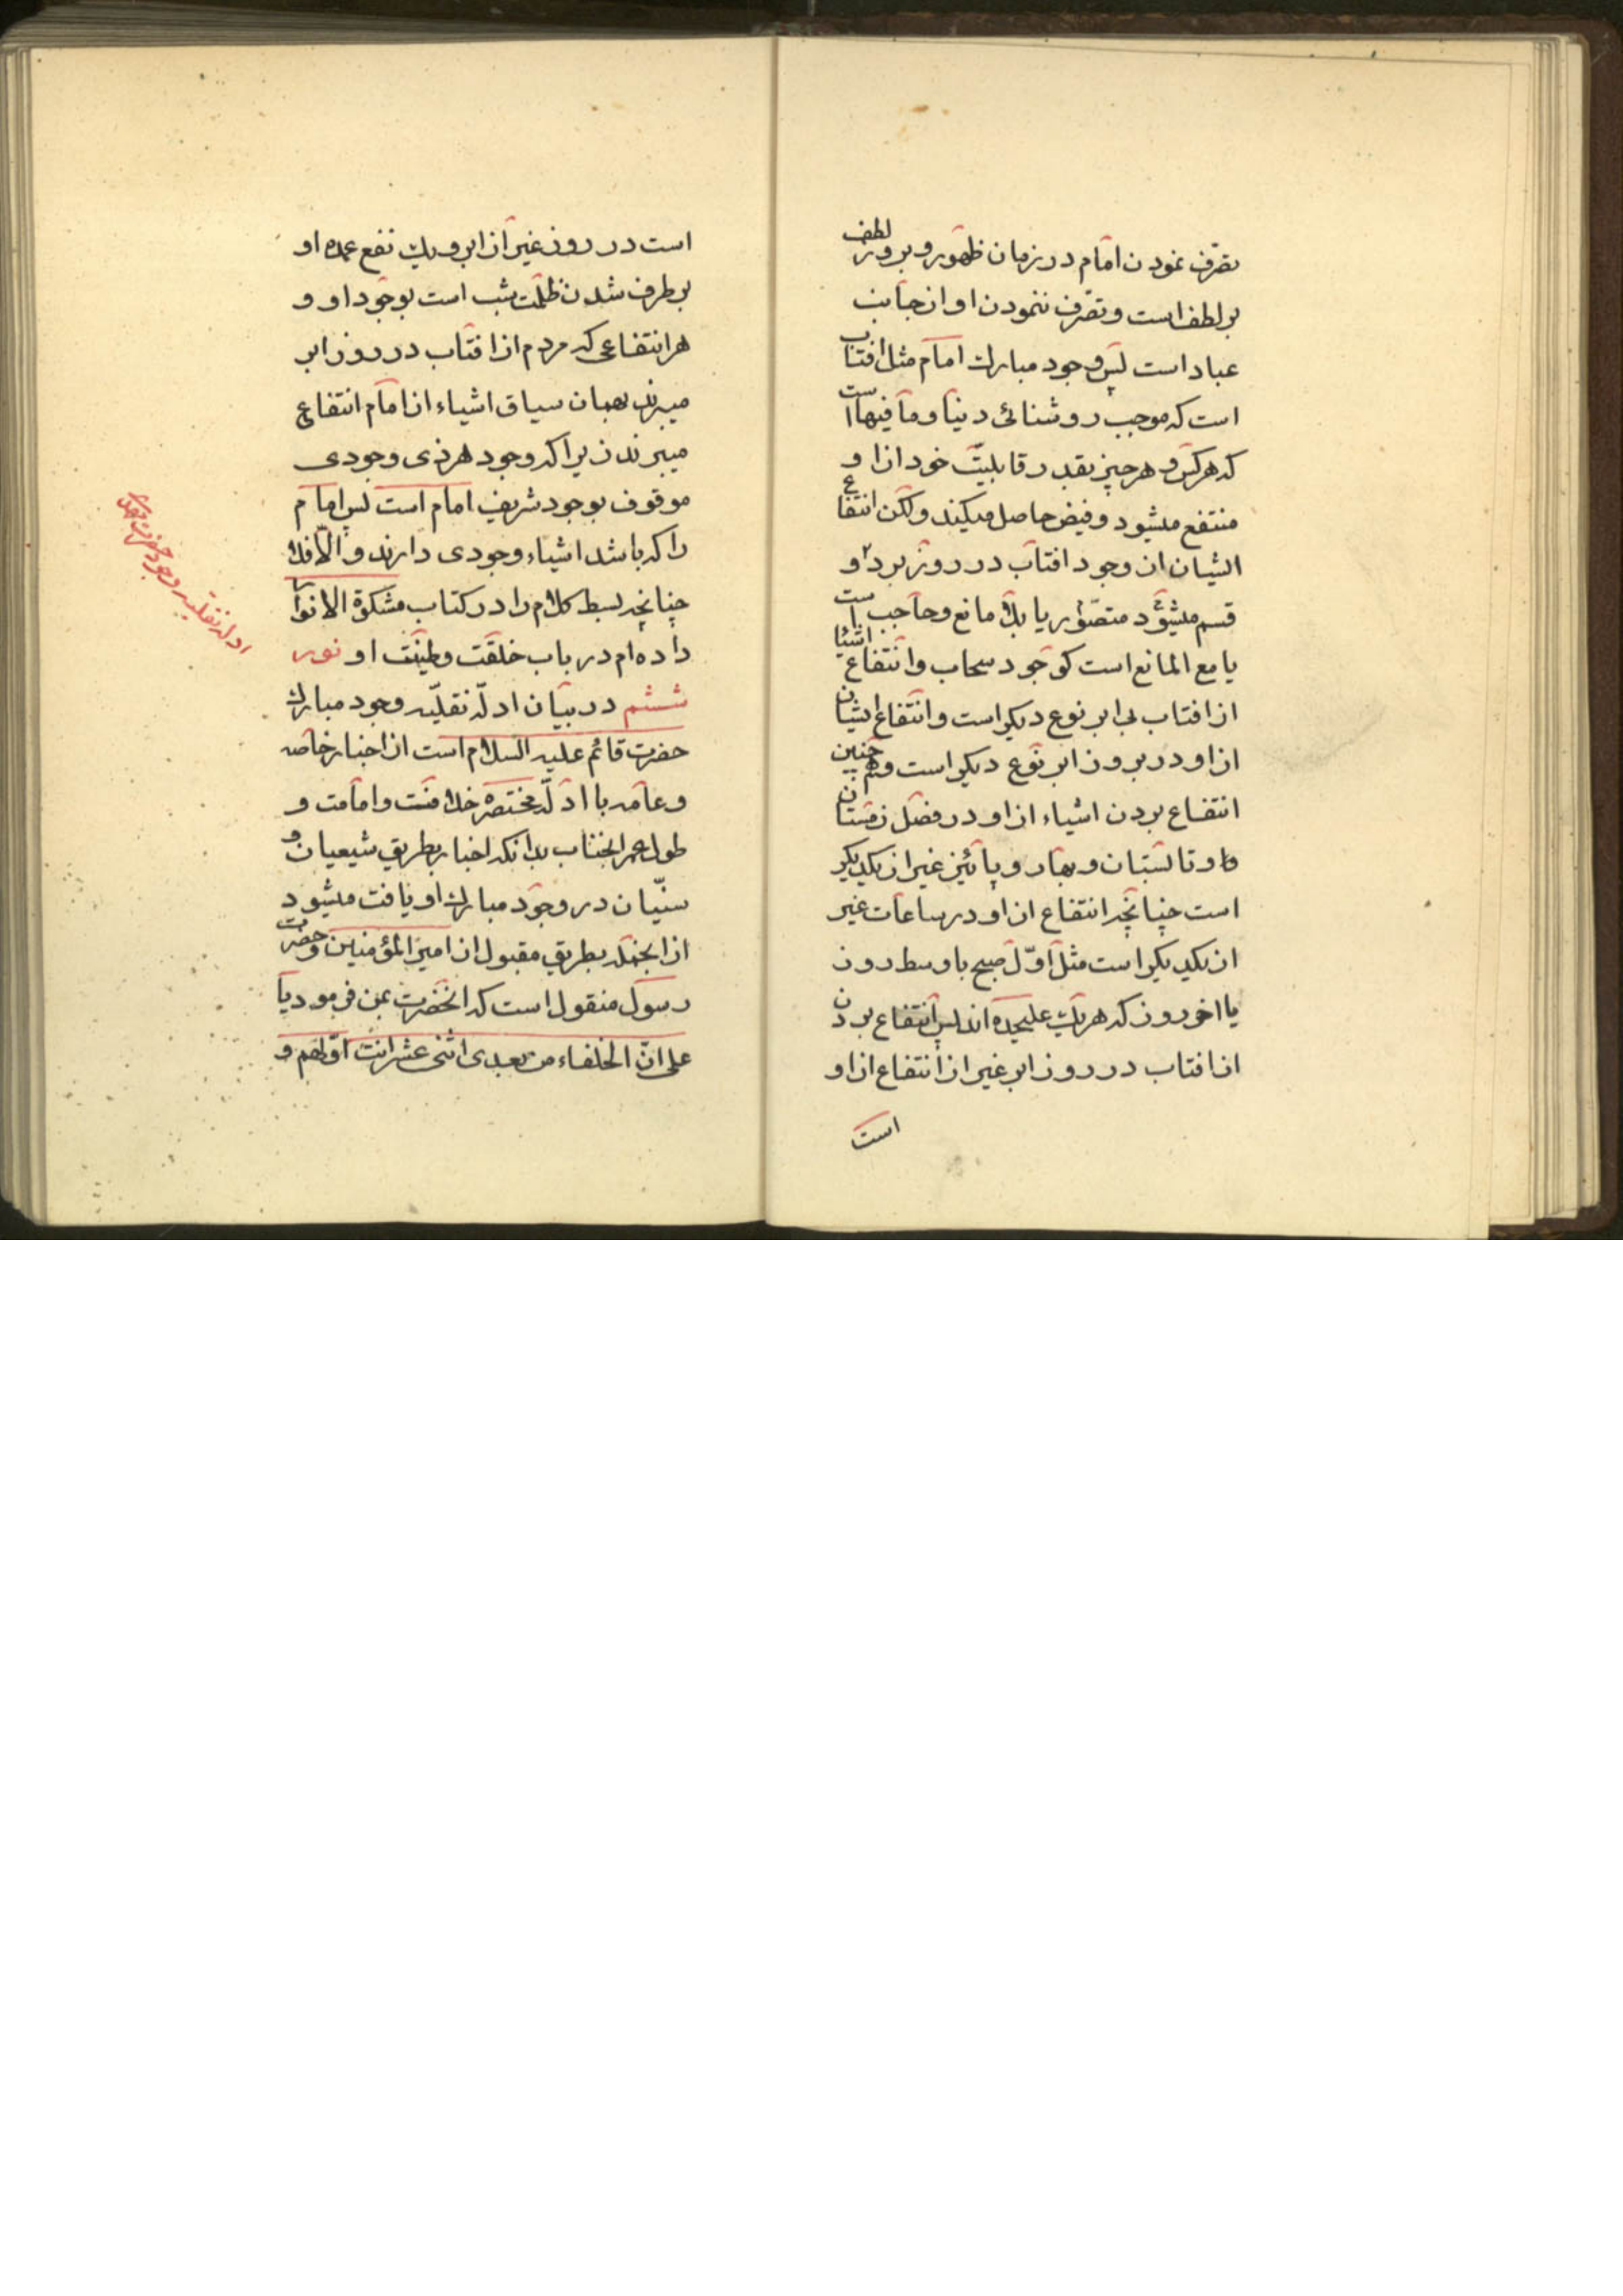 تصرف نمودن امام در زمان ظهور و بروز لطف
بر لطف است و تصرف ننمودن او از جانب
عباد است پس وجود مبارك امام مثل افتاب
است كه موجب روشنائی دنیا و ما فیها است
كه هر كس و هر چیز بقدر قابلیّت خود از او
منتفع میشود و فیض حاصل میكند ولكن انتفاع
ایشان از وجود افتاب در روز بر دو
قسم میشود متصوّر یا بلا مانع و حاجب است
یا مع المانع است كوجود سحاب و انتفاع اشیا
از افتاب بی ابر نوع دیكر است و انتفاع ایشان
از او در بروز ابر نوع دیكر است و همچنین
انتفاع بردن اشیاء از او در فصل زمستان
و تابستان و بهار و پائیز غیر از یكدیكر
است چنانچه انتفاع از او در ساعات غیر
از یكدیكر است مثل اوّل صبح یا وسط روز
یا اخر روز كه هر یك علیحده اند پس انتفاع بردن
از افتاب در روز ابر غیر از انتفاع از او
است
است در روز غیر از ابر و یك نفع عمده او
بر طرف شدن ظلمت شب است بوجود او و
هر انتفاعی كه مردم از افتاب در روز ابر
میبرند بهمان سیاق اشیاء از امام انتفاع
میبرند زیرا كه وجود هر ذی وجودی
موقوف بوجود شریف امام است پس امام
را كه باشد اشیاء وجودی دارند و الّا فلا
چنانچه بسط كلام را در كتاب مشكوة الانوار
داده ام در باب خلقت و طینت او نور
ششم در بیان ادلّه نقلیّه وجود مبارك
حضرت قائم علیه السلام است از اخبار خاصه
و عامه با ادلّه مختصره خلافت و امامت و
طول عمر انجناب بدانكه اخبار بطریق شیعیان و
سنّیان در وجود مبارك او یافت میشود
از انجمله بطریق مقبول از امیر المؤمنین و حضرت
رسول منقول است كه انحضرت بمن فرمود یا
علی انّ الخلفاء من بعدی اثنی عشر انت اوّلهم و
ادله نقلیه وجود حضرت